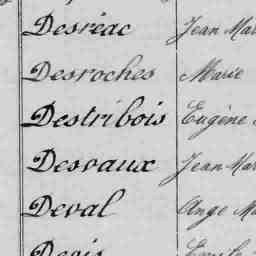 Desréac Jean Mar
Desroches Marie
Destribois Eugène
Desvaux Jean Mar
Deval Ange Ma